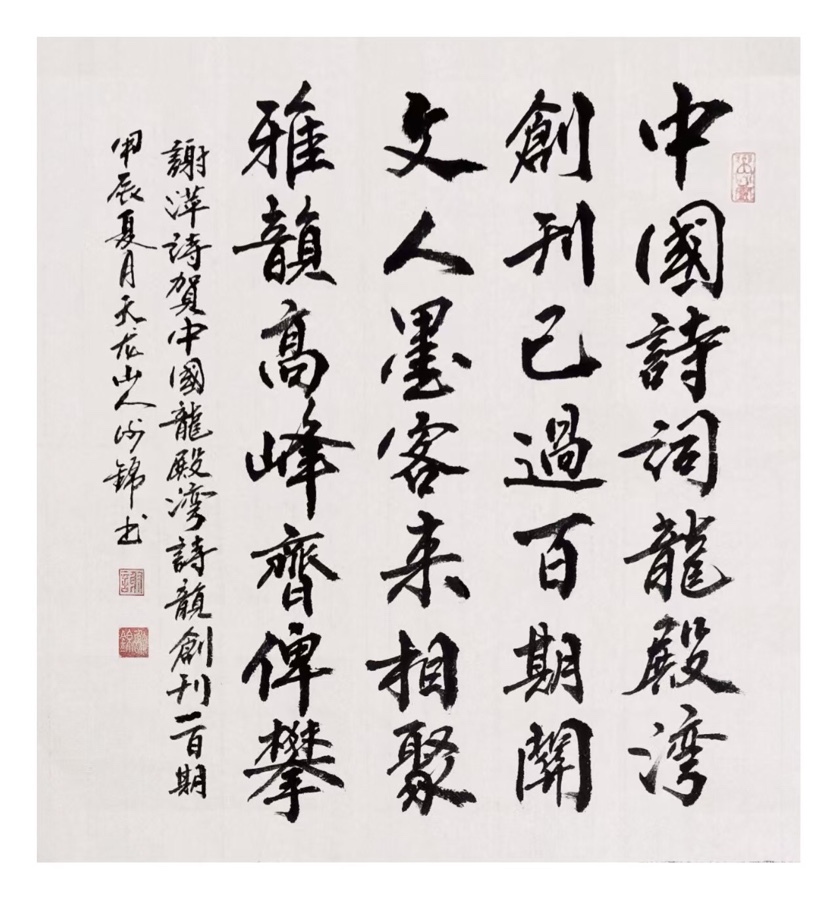 中國詩詞龍殿湾
創刊已過百期開
文人墨客来相聚
雅韻高峰齊俾攀
謝萍詩賀中國龍殿湾詩韻創刊一百期
甲辰夏月天龙山人沙錦书